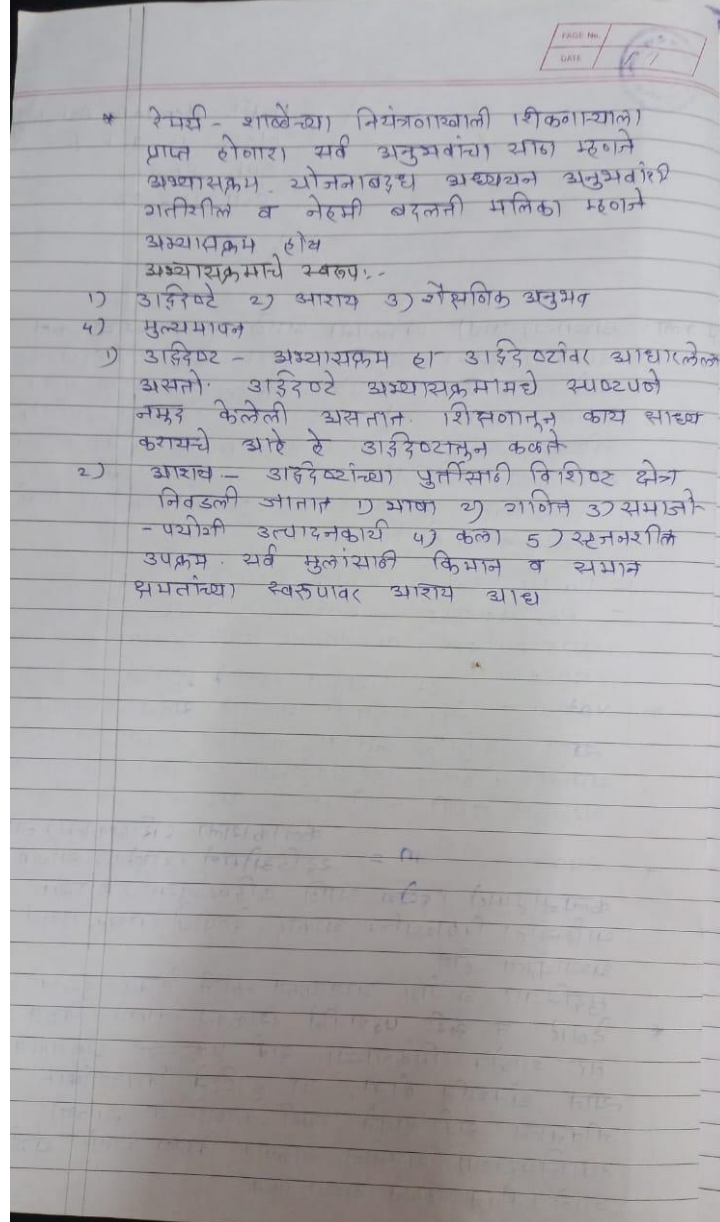 PAGE No.
DATE
* रेमर्य - शाळेच्या नियंत्रणाखाली शिकणाऱ्याला
प्राप्त होणारा सर्व अनुभवांचा साठा म्हणजे
अभ्यासक्रम. योजनाबद्ध अध्ययन अनुभवांची
गतीशील व नेहमी बदलती मलिका म्हणजे
अभ्यासक्रम होय
अभ्यासक्रमाचे स्वरूप:-
१) उद्दिष्टे २) आशय ३) शैक्षणिक अनुभव
४) मुल्यमापन
१) उद्दिष्ट - अभ्यासक्रम हा उद्दिष्टांवर आधारलेल
असतो. उद्दिष्टे अभ्यासक्रमामधे स्पष्टपणे
नमुद केलेली असतात. शिक्षणातुन काय साध्य
करायचे आहे हे उद्दिष्टातुन कळते
२) आशय - उद्दिष्टांच्या पुर्तीसाठी विशिष्ट क्षेत्र
निवडली जातात १) भाषा २) गणित ३) समाजो-
-पयोगी उत्पादनकार्य ४) कला 5) सृजनशील
उपक्रम. सर्व मुलांसाठी किमान व समान
क्षमतांच्या स्वरूपावर आशय आध